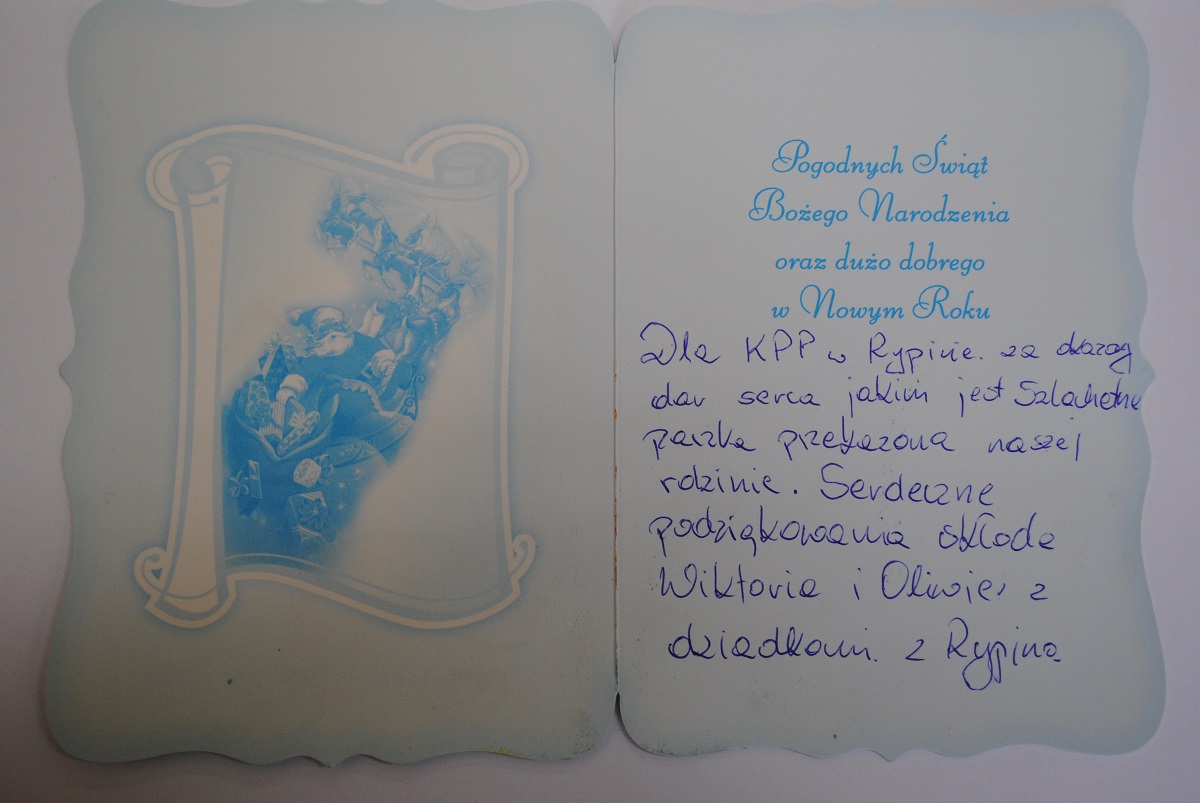 Pogodnych Świąt
Bożego Narodzenia
oraz dużo dobrego
w Nowym Roku
Dla KPP w Rypinie. za
dar serca jakim jest Szlachetna
paczka przekazona naszej
rdzinie. Serdeczne
podziąkowania składa
Wiktoria i Oliwier z
dziadkami. z Rypina